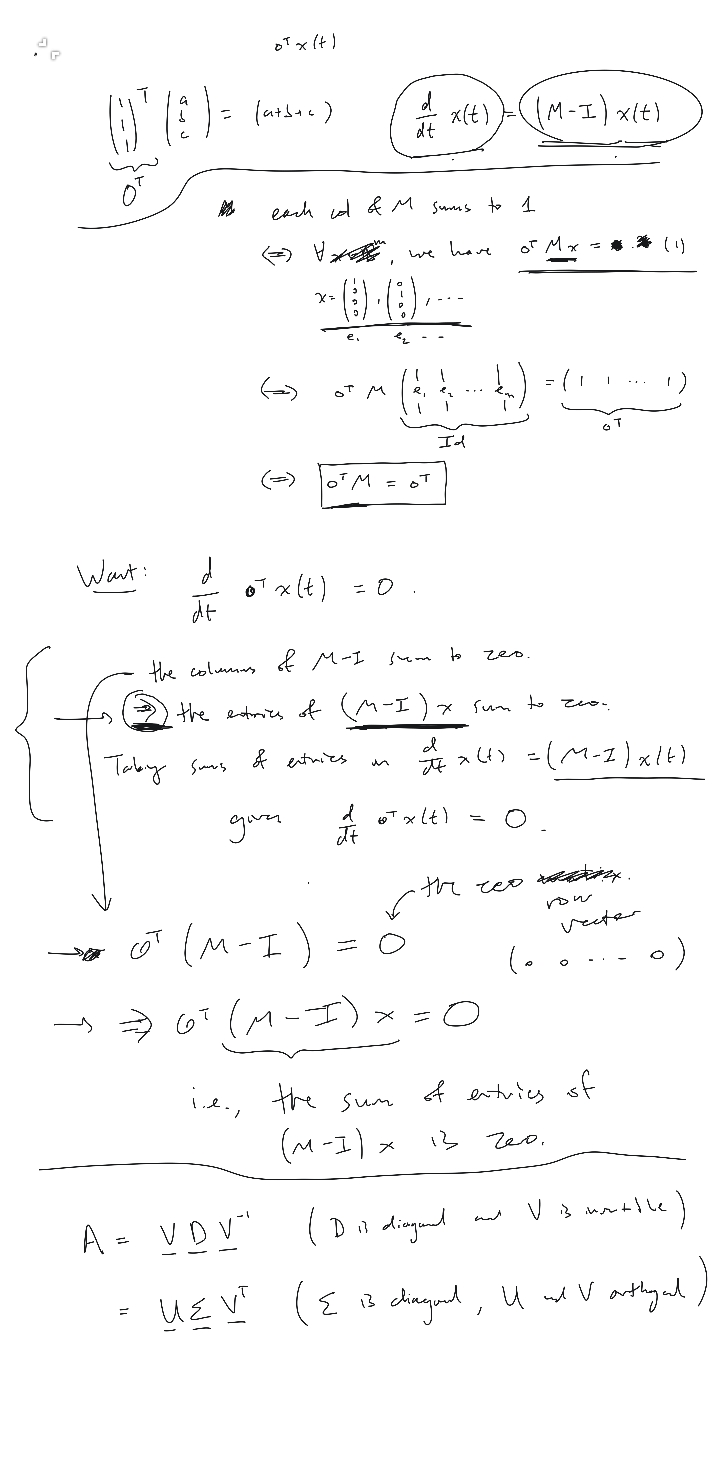 oᵀ x(t)
(1 1 1)ᵀ (a b c) = (a+b+c)
oᵀ
d/dt x(t) = (M-I) x(t)
each col of M sums to 1
(⇔) ∀ , we have oᵀ Mx = (1)
x = (1 0 0 0), (0 1 0 0), ...
e₁ e₂ --
(⇔) oᵀ M (e₁ e₂ ... eₘ) = (1 1 ... 1)
Id oᵀ
(⇔) oᵀM = oᵀ
Want: d/dt oᵀ x(t) = 0.
the columns of M-I sum to zero.
→ ⇒ the entries of (M-I) x sum to zero.
Taking sums of entries in d/dt x(t) = (M-I) x(t)
gives d/dt oᵀ x(t) = 0.
the zero
row
vector
→ oᵀ (M-I) = 0
(0 0 ... 0)
→ ⇒ oᵀ (M-I) x = 0
i.e., the sum of entries of
(M-I) x is zero.
A = V D V⁻¹ (D is diagonal and V is invertible)
= U Σ Vᵀ (Σ is diagonal, U and V orthogonal)